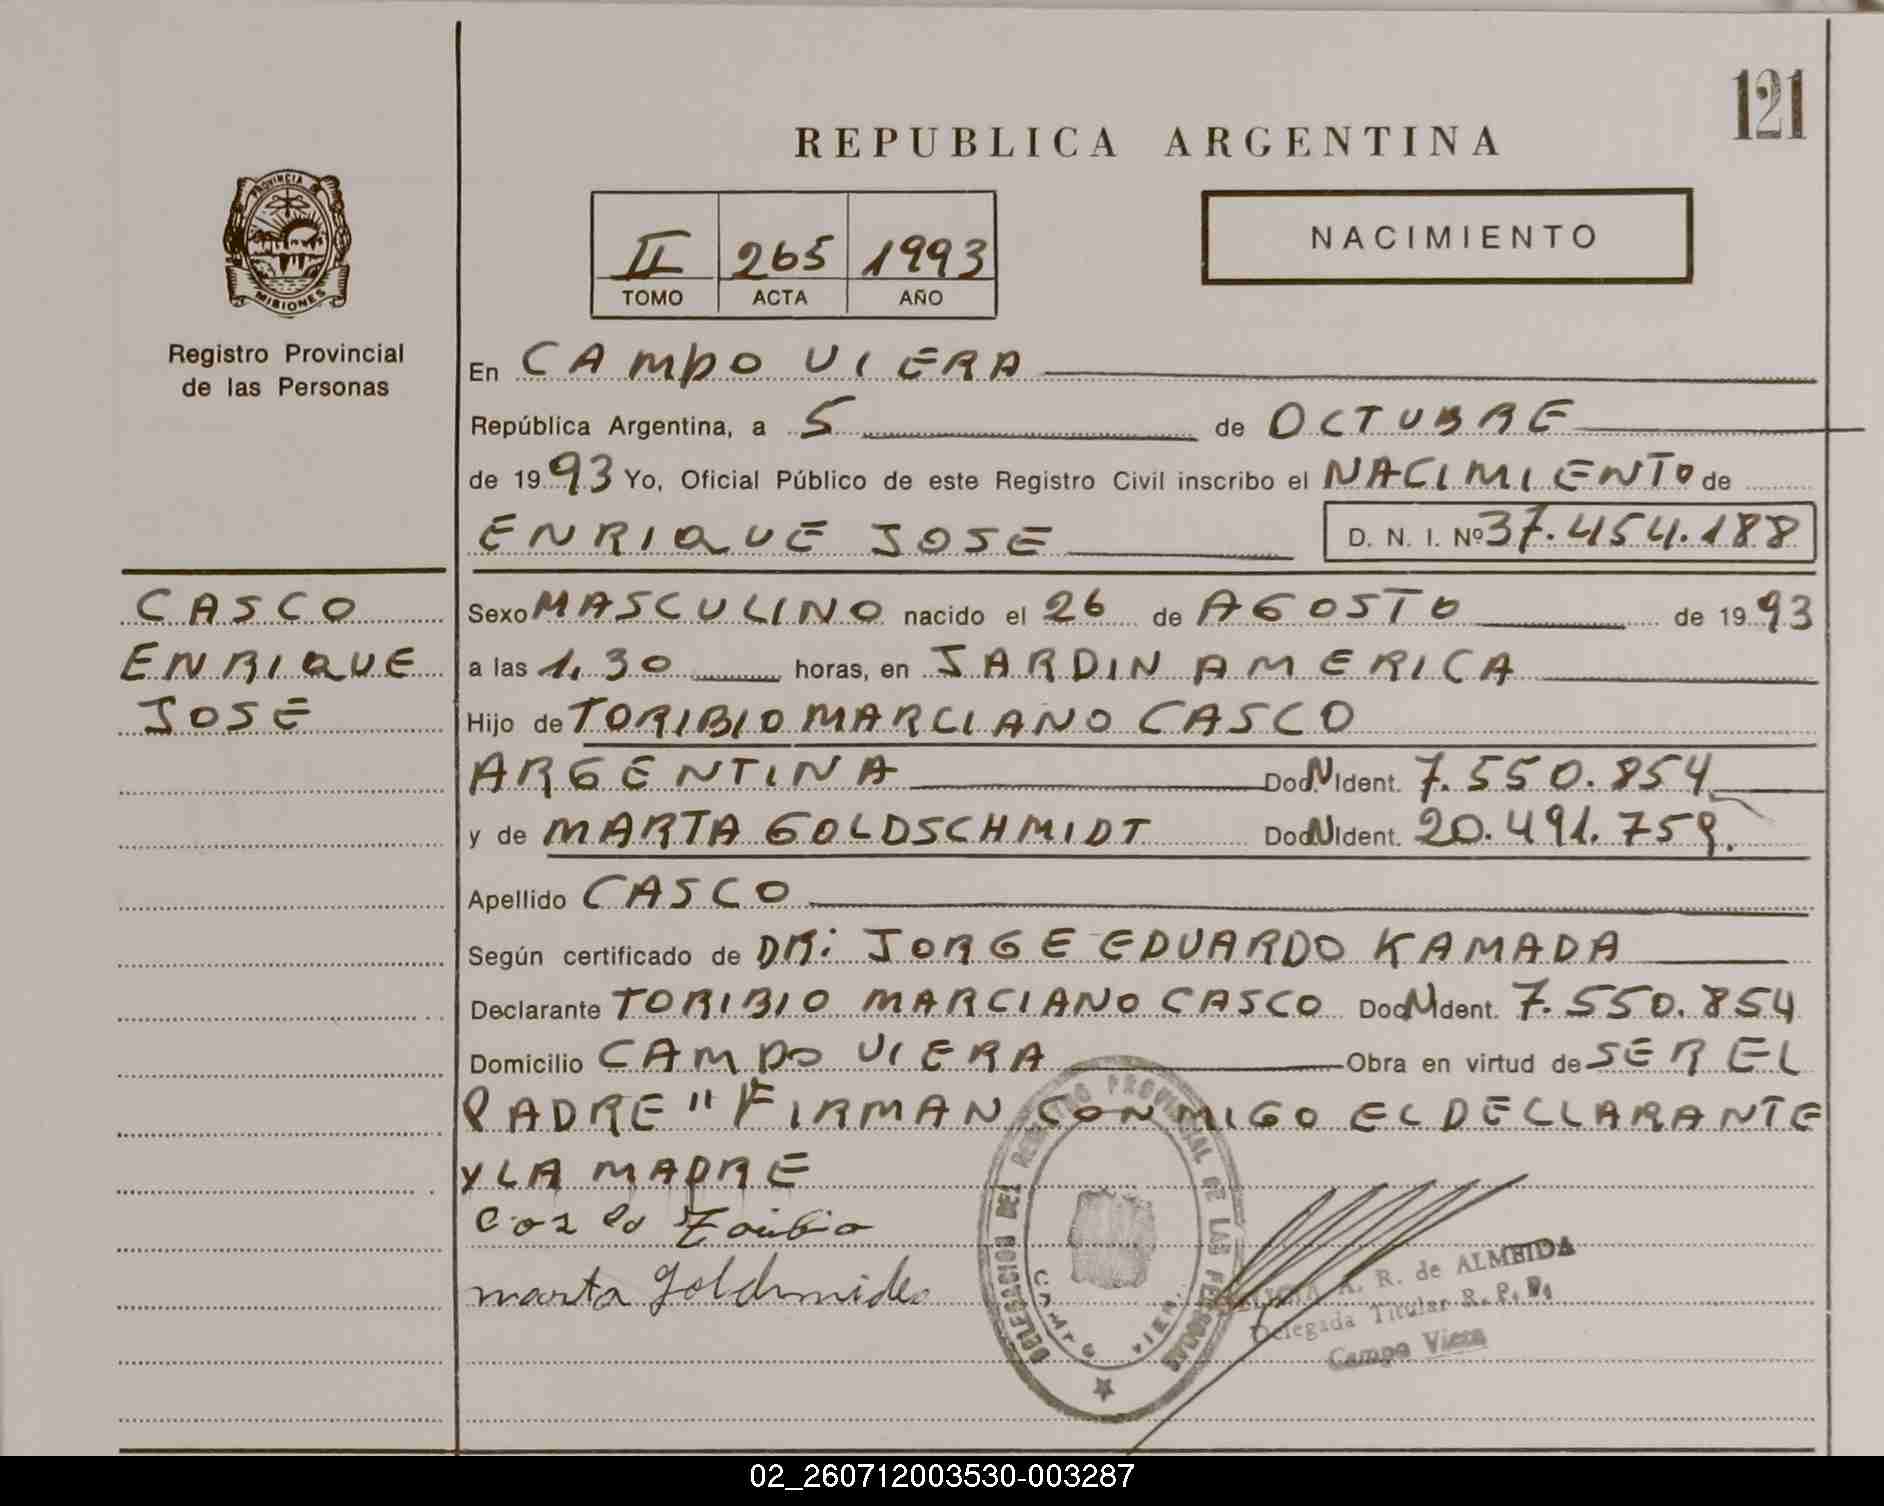 121
REPUBLICA ARGENTINA
PROVINCIA DE
MISIONES
Registro Provincial
de las Personas
II 265 1993
TOMO ACTA AÑO
NACIMIENTO
En CAMPO VIERA
República Argentina, a 5 de OCTUBRE
de 19 93 Yo, Oficial Público de este Registro Civil inscribo el NACIMIENTO de
ENRIQUE JOSE D. N. I. Nº 37.454.188
CASCO
ENRIQUE
JOSE
Sexo MASCULINO nacido el 26 de AGOSTO de 19 93
a las 1,30 horas, en JARDIN AMERICA
Hijo de TORIBIO MARCIANO CASCO
ARGENTINA Doc. N Ident. 7.550.854
y de MARTA GOLDSCHMIDT Doc. N Ident. 20.491.759.
Apellido CASCO
Según certificado de DR: JORGE EDUARDO KAMADA
Declarante TORIBIO MARCIANO CASCO Doc. N Ident. 7.550.854
Domicilio CAMPO VIERA Obra en virtud de SER EL
PADRE" FIRMAN CONMIGO EL DECLARANTE
Y LA MADRE
marta
DELEGACION DEL REGISTRO PROVINCIAL DE LAS PERSONAS
CAMPO VIERA
A. R. de ALMEIDA
Delegada Titular R. P. P.
Campo Viera
02_260712003530-003287